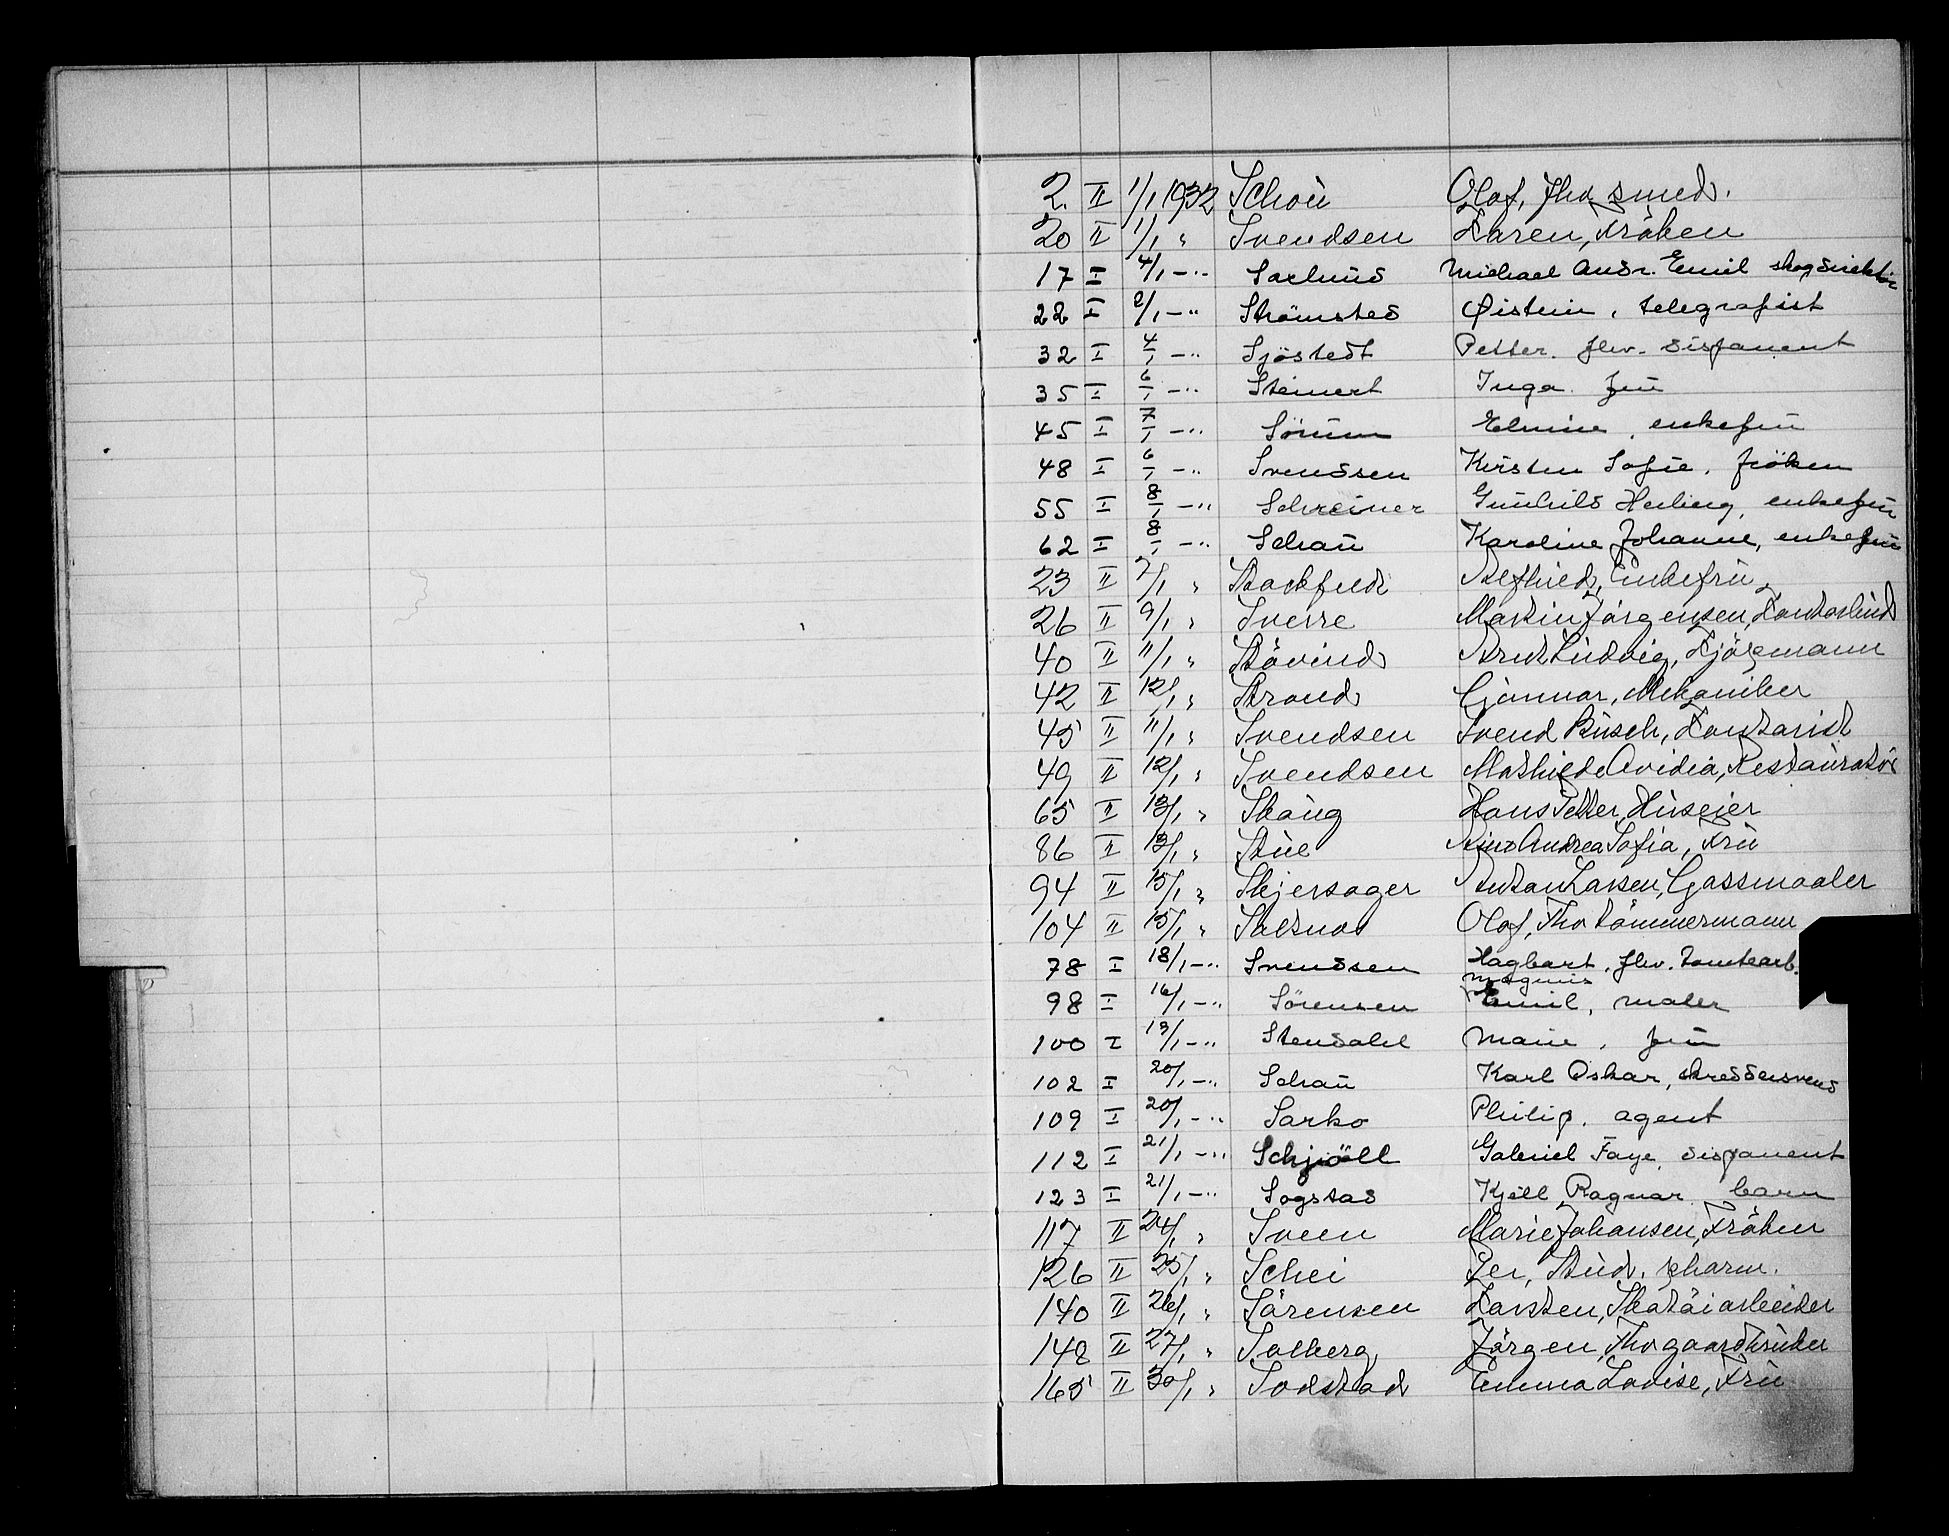 2. II 1/1 1932 Schou Olof, fhv. smed.
20 II 1/1 " Svendsen Karen, Fröken
17 I 4/1 -" Saxlund Michael Andr. Emil skogdirektör
28 I 2/1 -" Strömsted Øistein, telegrafist
32 I 4/1 -" Sjöstedt Petter. fhv. disponent
35 I 6/1 -" Steinert Inga. fru
45 I 7/1 -" Sörum Elmine, enkefru
48 I 6/1 -" Svendsen Kirsten Sofie, fröken
55 I 8/1 -" Schreiner Gunhild, enkefru
62 I 8/1 -" Schau Karoline Johanne, enkefru
23 II 7/1 " Enkefru
26 II 9/1 " Sverre Martin Jörgensen, Kontorbud
40 II 11/1 " Stövind Arnt Ludvig, Kjöremann
42 II 12/1 " Strand Gunnar, Mekaniker
45 II 11/1 " Svendsen Svend Busch, Kontorist
49 II 12/1 " Svendsen Mathilde Ovidia, Restauratör
65 II 13/1 " Skaug Hans Petter, Huseier
86 II 13/1 " Stue Andrea Sofia, Fru
94 II 15/1 " Skjersager Anton Larsen, Gassmaaler
104 II 15/1 " Saltnes Olof, Fhv. Tömmermann
78 I 18/1 -" Svendsen Hagbart, fhv. tomtearb.
Magnus
98 I 16/1 -" Sörensen Emil, maler
100 I 19/1 -" Stendahl Marie, fru
102 I 20/1 -" Schau Karl Oskar, skreddersvend
109 I 20/1 -" Sarko Philip, agent
112 I 21/1 -" Schjöll Gabriel Faye, disponent
123 I 21/1 -" Sogstad Kjell Ragnar barn
117 II 24/1 " Sveen Marie Johansen, Fröken
126 II 25/1 " Schei Per, Stud. pharm.
140 II 26/1 " Sörensen Karsten, Skotöiarbeider
148 II 27/1 " Solberg Jörgen, Fhv. gaardbruker
165 II 30/1 " Sodstad Emma Lovise, Fru